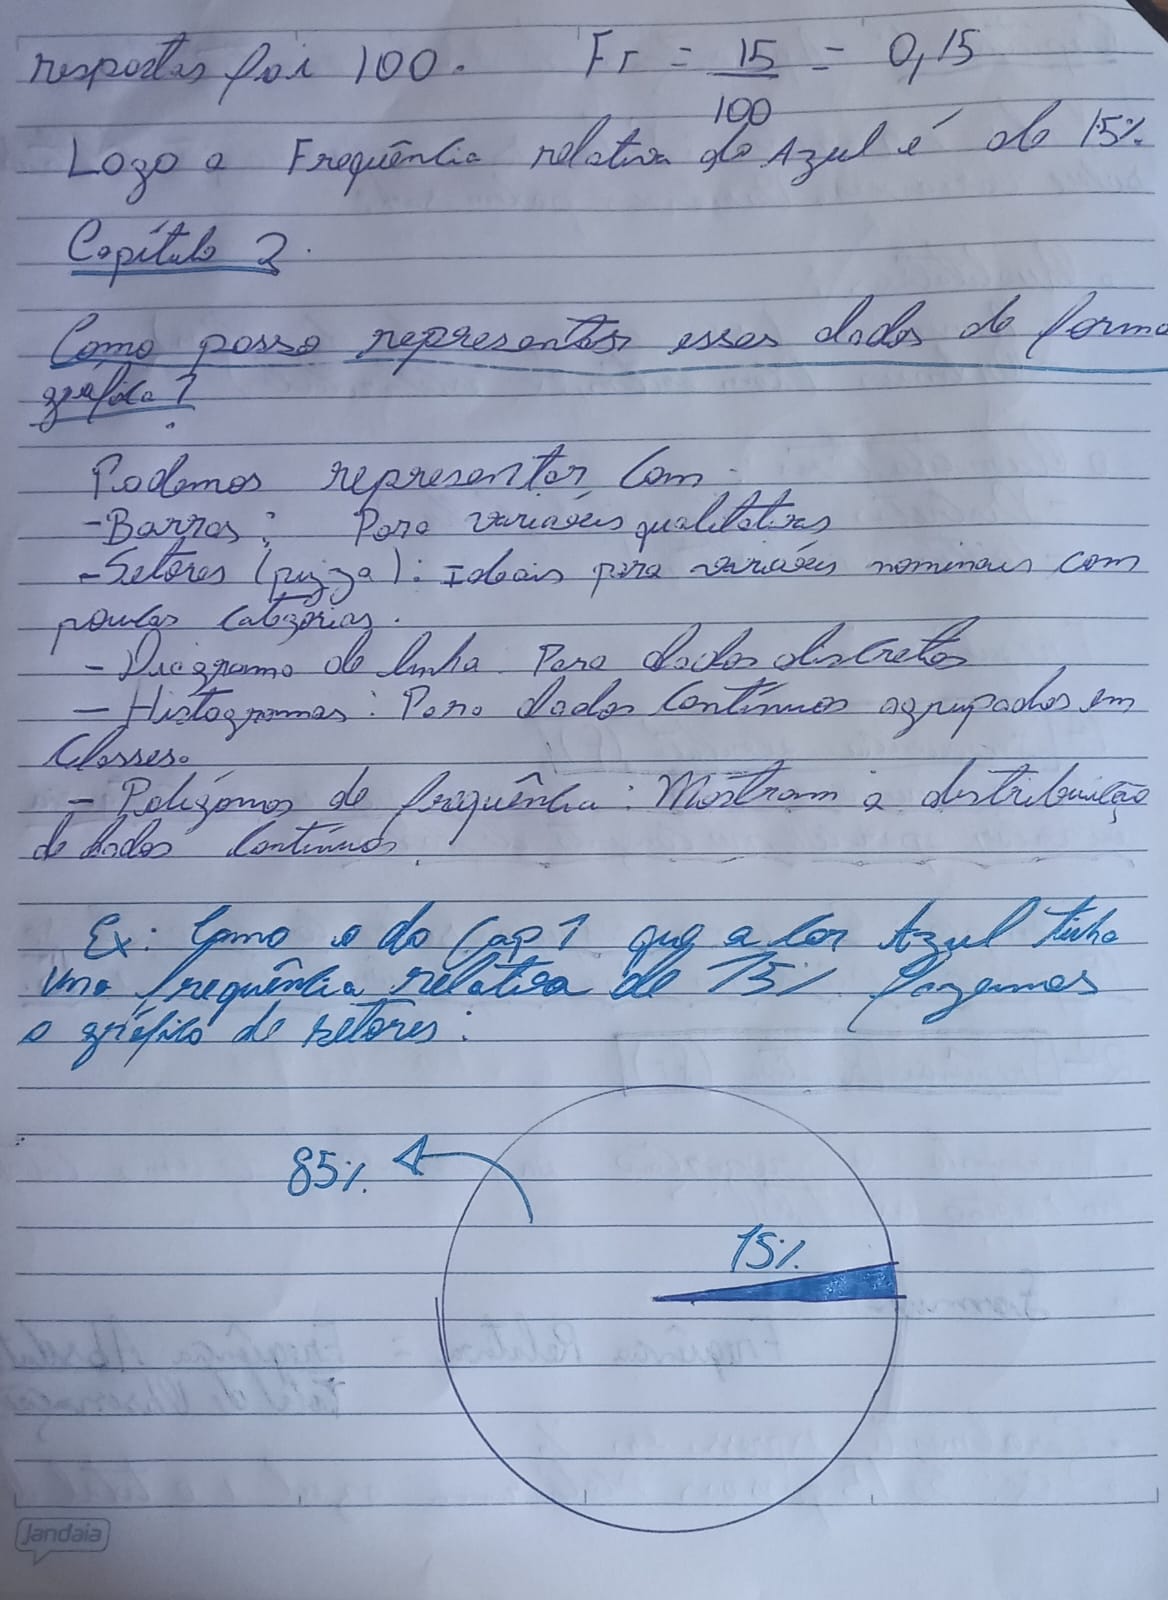 respostas foi 100. Fr = 15/100 = 0,15
Logo a Frequência relativa do Azul é de 15%.
Capítulo 2.
Como posso representar esses dados de forma
gráfica?
Podemos representar com:
-Barras: Para variáveis qualitativas
-Setores (pizza): Ideais para variáveis nominais com
poucas categorias.
- Diagrama de linha Para dados discretos
- Histogramas: Para dados Contínuos agrupados em
Classes.
- Polígonos de frequência: Mostram a distribuição
de dados Contínuos.
Ex: Como o do Cap 1 que a cor Azul tinha
uma frequência relativa de 15% fazemos
o gráfico de setores:
85%.
15%.
Jandaia